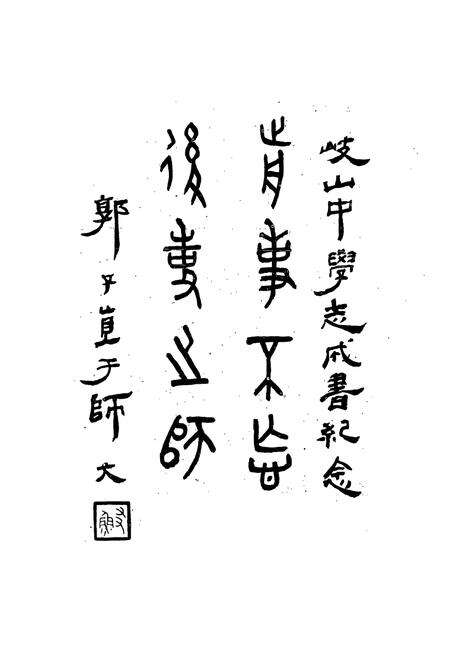 岐山中學志成書紀念
前事不忘
後事之師
郭子直于師大